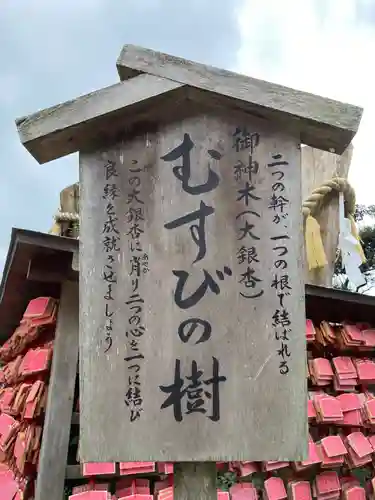 二つの幹が、一つの根で結ばれる
御神木（大銀杏）
むすびの樹
この大銀杏に肖り二つの心を一つに結び
あやか
良縁を成就させましょう